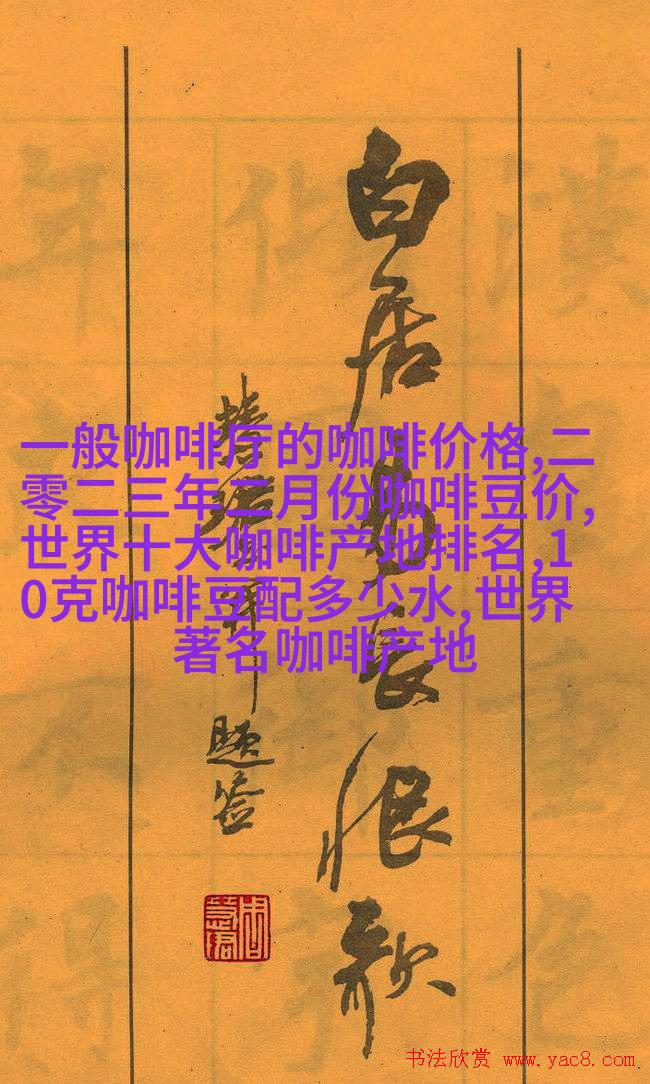 白居易長恨歌
題签
一般咖啡厅的咖啡价格,二
零二三年二月份咖啡豆价,
世界十大咖啡产地排名,1
0克咖啡豆配多少水,世界
著名咖啡产地
书法欣赏 www.yac8.com